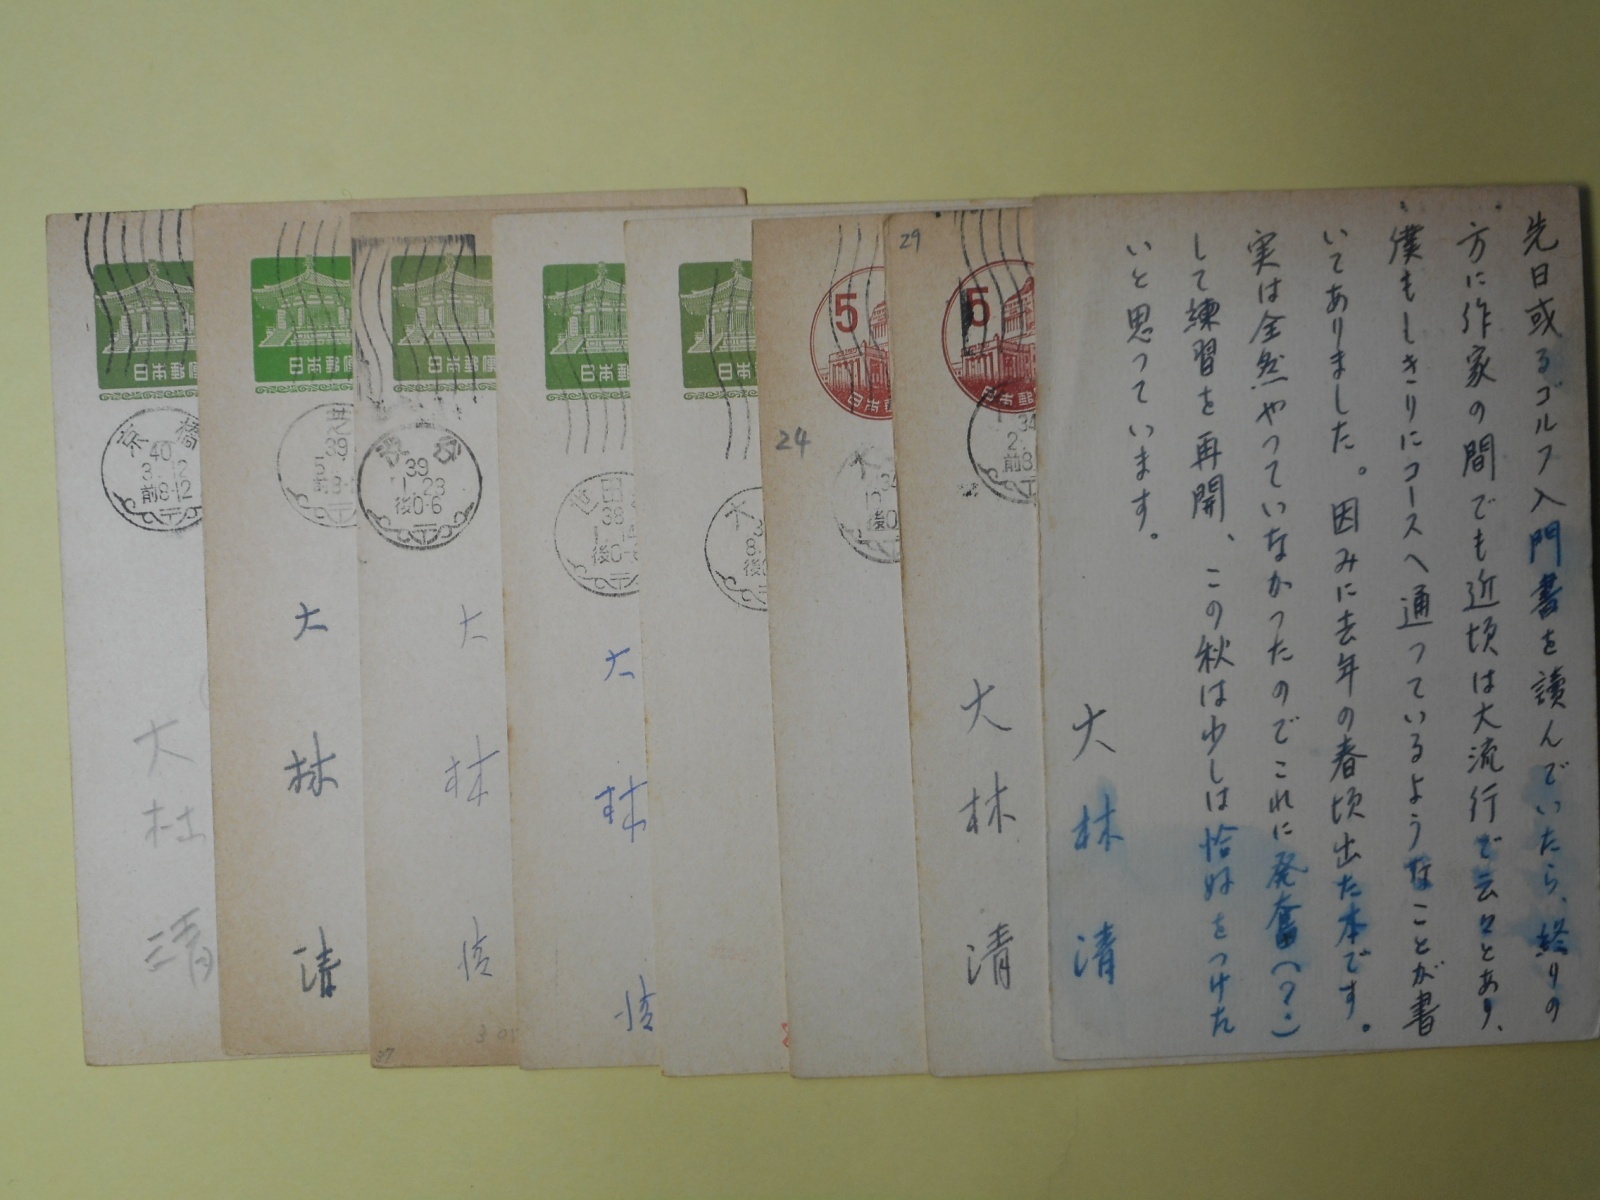 先日或るゴルフ入門書を讀んでいたら、終りの
方に作家の間でも近頃は大流行で云々とあり、
僕もしきりにコースへ通っているようなことが書
いてありました。因みに去年の春頃出た本です。
実は全然やっていなかったのでこれに発奮(?)
して練習を再開、この秋は少しは恰好をつけた
いと思っています。
大林清
29
5
日本郵
34
2.
前8
大林清
24
5
日本
34
後0
日本郵
8.
後0
日本郵
田
38
後0-6
大林清
日本郵便
渋谷
39
1.23
後0-6
大林清
27
日本郵便
芝
39
5.
前8-
大林清
日本郵便
京橋
40
3.12
前8-12
大林清